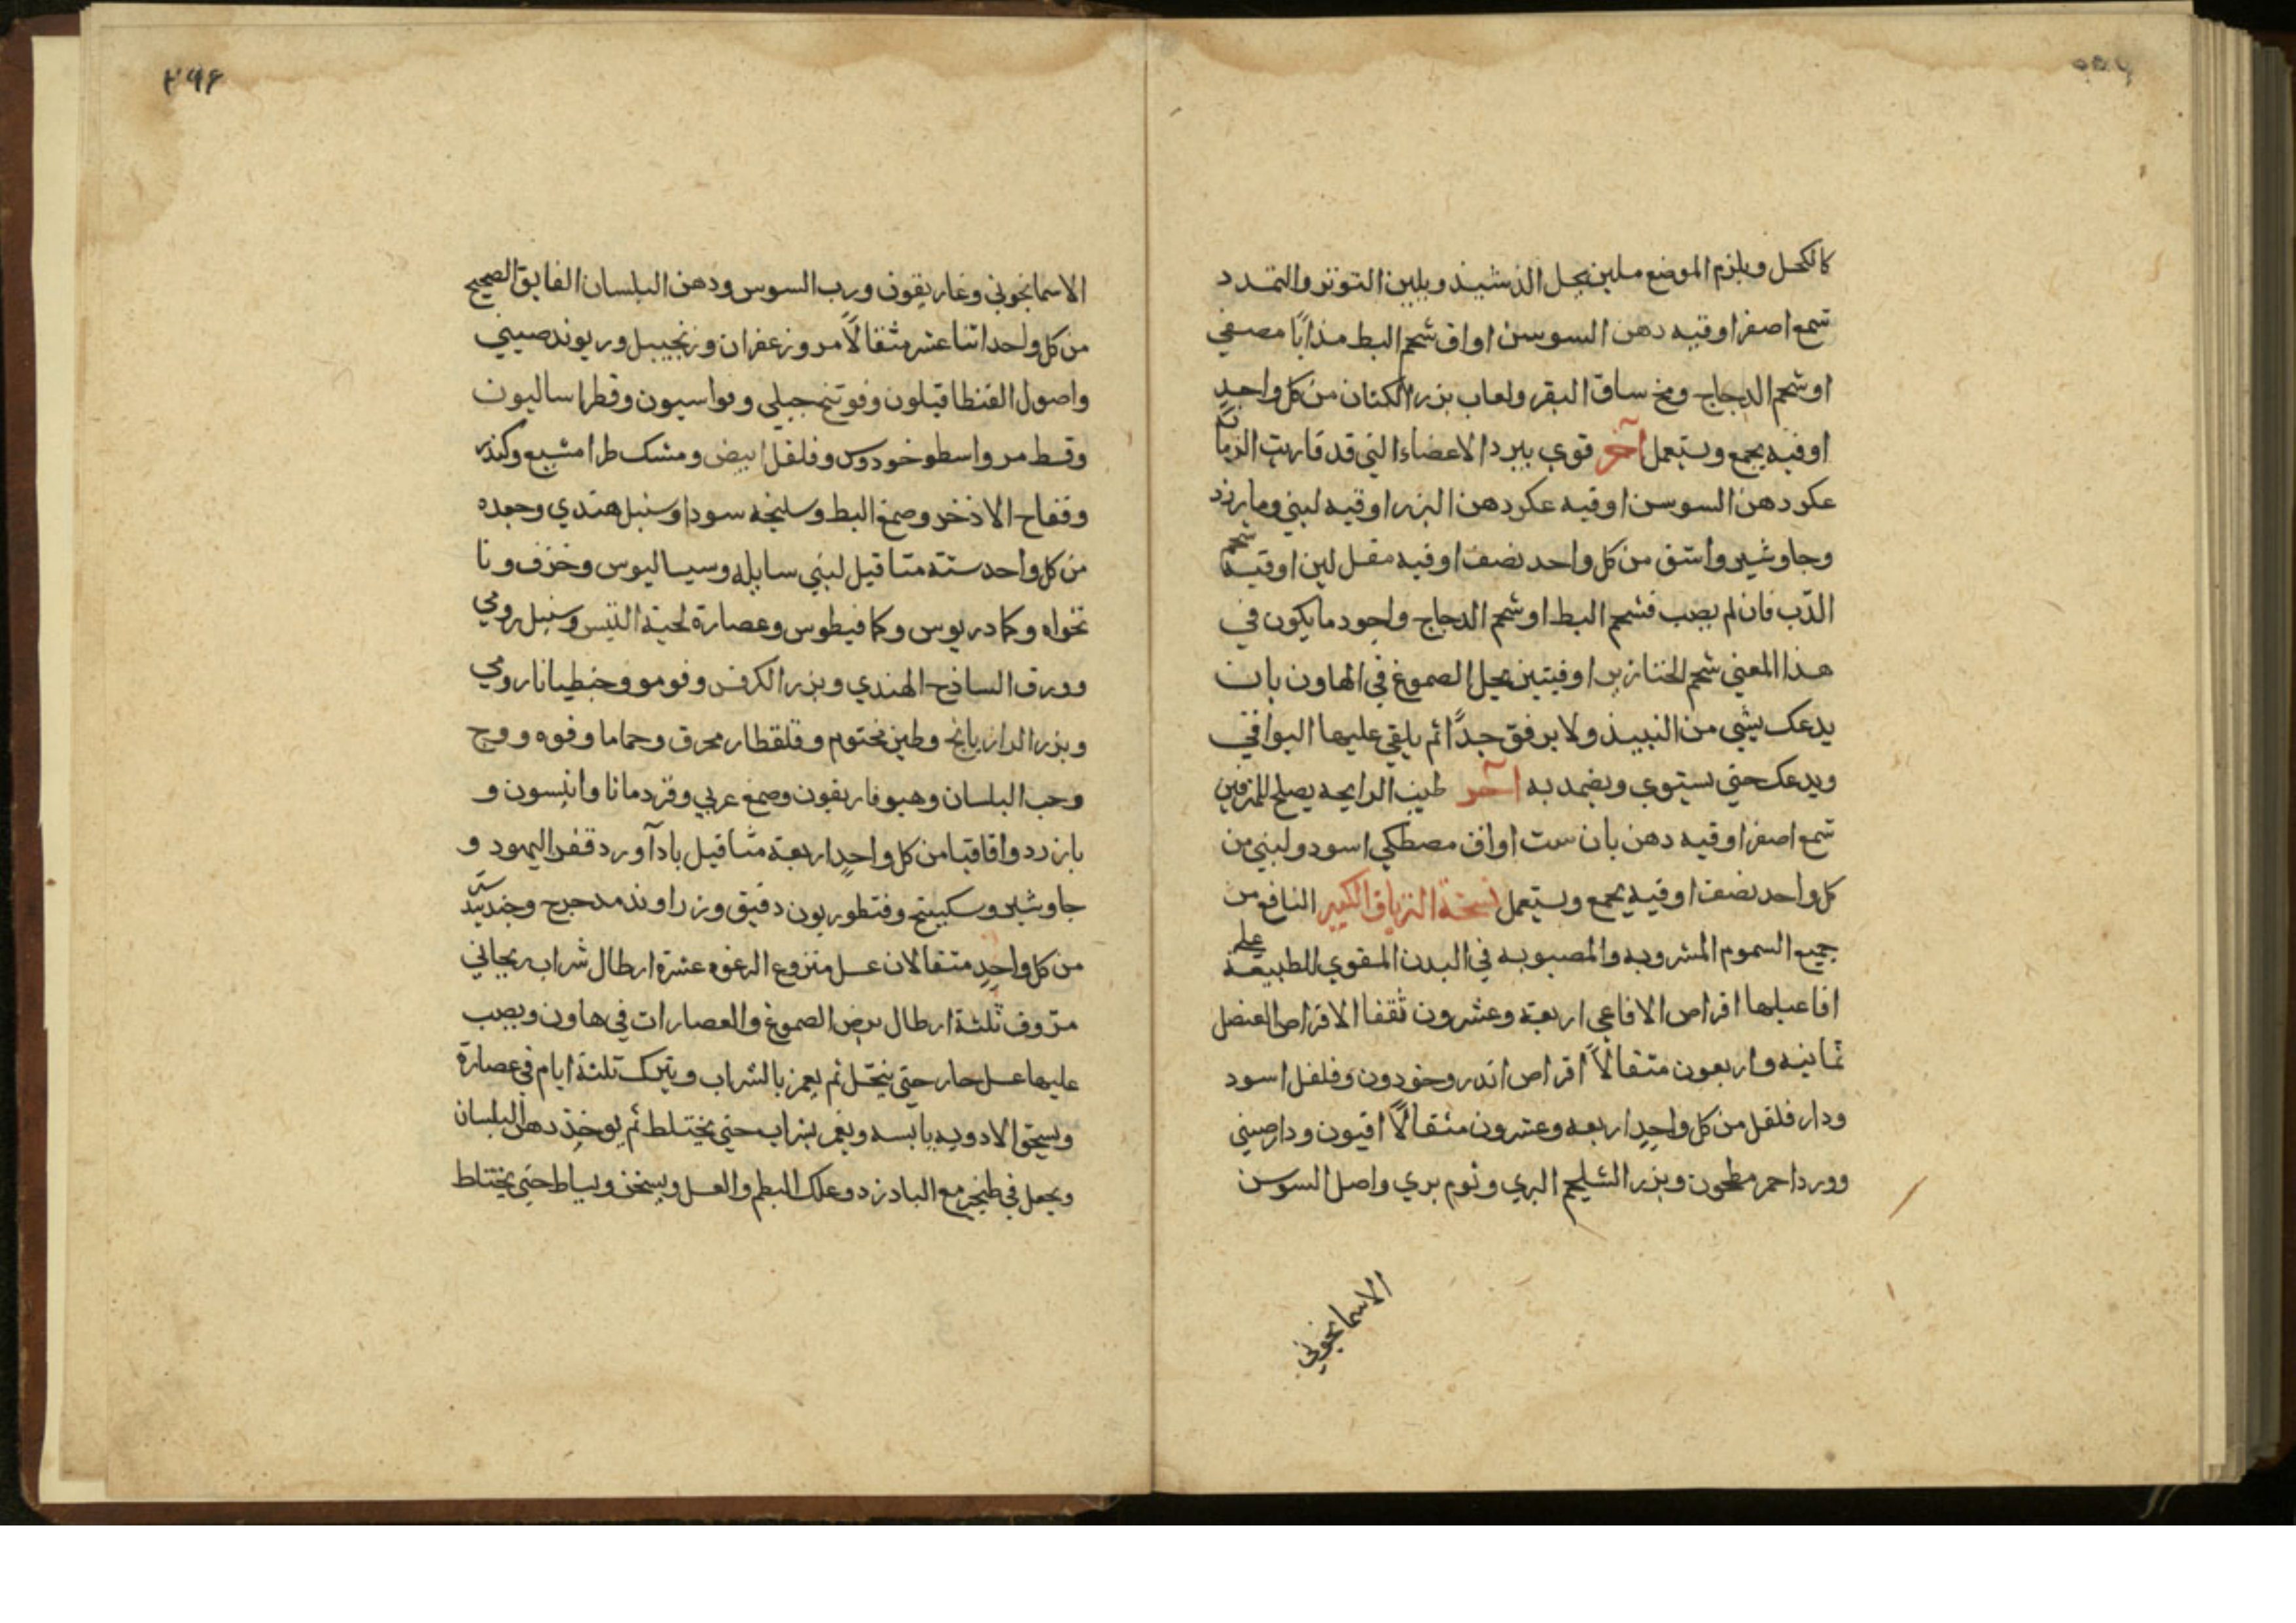 كالكحل ويلزم الموضع ملين يحل الذشبذ ويلين التوتر والتمدد
شمع اصفر اوقيه دهن السوسن اواق شحم البط مذابًا مصفي
او شحم الدجاج ومخ ساق البقر ولعاب بزر الكتان من كل واحدٍ
اوقيه يجمع ويستعمل آخر قوي يبرد الاعضاء التي قد قاربت الزمانه
عكر دهن السوسن اوقيه عكر دهن البزر اوقيه لبني ومارزد
وجاوشير واشق من كل واحد نصف اوقيه مقل لين اوقيه شحم
الدّب فان لم يصب فشحم البط او شحم الدجاج واجود ما يكون في
هذا المعني شحم الخنازير اوقيتين يحل الصموغ في الهاون بان
يدعك بشي من النبيذ ولا يرفق جدًّا ثم يلقي عليها البواقي
ويدعك حتي يستوي ويضمد به آخر طيب الرايحه يصلح للمترفين
شمع اصفر اوقيه دهن بان ست اواق مصطكي اسود ولبني من
كل واحد نصف اوقيه يجمع ويستعمل نسخة الترياق الكبير النافع من
جميع السموم المشروبه والمصبوبه في البدن المقوي للطبيعة علي
افاعيلها اقراص الافاعي اربعة وعشرون ثقفا الا قراص العنصل
ثمانيه واربعون مثقالاً اقراص اندروخودون وفلفل اسود
ودار فلفل من كل واحدٍ اربعه وعشرون مثقالاً افيون ودارصيني
وورد احمر مطحون وبزر الشليحم البري وثوم بري واصل السوسن
الاسمانجوني
٢٩٦
الاسمانجوني وغاريقون ورب السوس ودهن البلسان الفايق الصحيح
من كل واحد اثنا عشر مثقالاً مر وزعفران وزنجبيل وريوند صيني
واصول القنطاقيلون وفوتنج جبلي وفواسيون وقطراساليون
وقسط مر واسطوخودوس وفلفل ابيض ومشك طرامشيع وكندر
وفقاح الاذخر وصمغ البط وسليخه سودا وسنبل هندي وجعده
من كل واحد ستة مثاقيل لبني سايله وسيساليوس وخزف ونا
نخواه وكمادريوس وكمافيطوس وعصارة لحية التيس وسنبل رومي
وورق الساذج الهندي وبزر الكرفس وفومو وجنطيانا رومي
وبزر الرازيانج وطين مختوم وقلقطار محرق وحماما وفوه ووج
وحب البلسان وهيوفاريقون وصمغ عربي وقردمانا وانيسون و
بارزد واقاقيا من كل واحدٍ اربعة مثاقيل بادآورد قفر اليهود و
جاوشير وسكبينج وقنطوريون دقيق وزراوند مدحرج وجندبيدستر
من كل واحدٍ مثقالان عسل منزوع الرغوه عشرة ارطال شراب ريحاني
مرّوق ثلثة ارطال يرض الصموغ والعصارات في هاون ويصب
عليها عسل حار حتي ينحّل ثم يعمر بالشراب ويترك ثلثة ايام في عصارة
ويسحق الادويه يابسه ويغمر بشراب حتي يختلط ثم يوخذ دهن البلسان
ويجعل في طنجير مع البادزد وعلك البطم والعسل ويسخن ويساط حتي يختلط